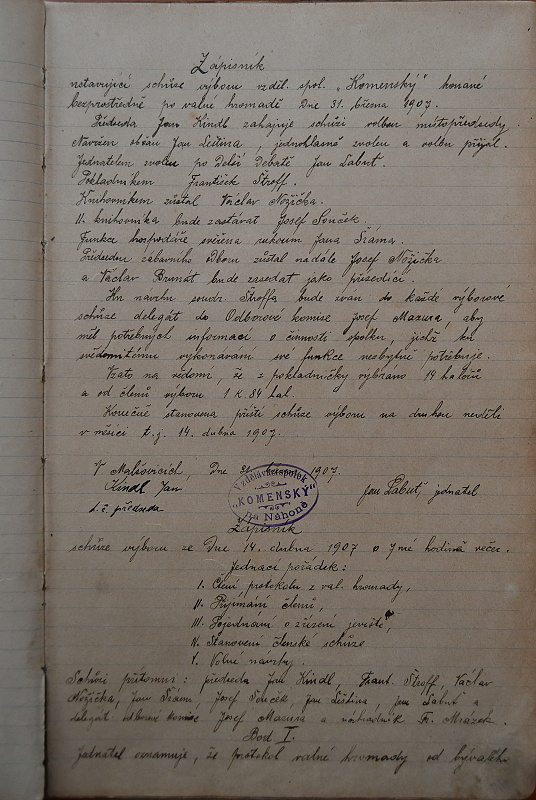 Zápisník
ustavující schůze výboru vzděl. spol. „Komenský" konané
bezprostředně po valné hromadě Dne 31. března 1907.
Předseda Jan Kindl zahajuje schůzi volbou místopředsedy.
Navržen občan Jan Leština, jednohlasně zvolen a volbu přijal.
Jednatelem zvolen po Delší Debatě Jan Labuť.
Pokladníkem František Štroff.
Knihovníkem zůstal Václav Nožička.
II. knihovníka bude zastávat Josef Souček.
Funkce hospodáře svěřena rukoum Jana Šrama.
Předsedou zábavního odboru zůstal nadále Josef Nožička
a Václav Brunát bude zasedat jako přísedící.
Na návrh soudr. Štroffa bude zván do každé výborové
schůze delegát do Odborové komise Josef Mazura, aby
měl potřebných informací o činnosti spolku, jichž ku
svědomitému vykonávaní své funkce nezbytně potřebuje.
Vzato na vědomí, že z pokladničky vybráno 14 haléřů
a od členů výboru 1 K. 84 hal.
Konečně stanovena příští schůze výboru na druhou neděli
v měsíci t. j. 14. dubna 1907.
V Malšovicích, Dne 31. března 1907.
Kindl Jan
t. č. předseda
Jan Labuť, jednatel
Vzdělávací spolek
„KOMENSKÝ"
na Náhoně
Zápisník
schůze výboru ze Dne 14. dubna 1907 o 7mé hodině večer.
Jednací pořádek:
I. Čtení protokolu z val. hromady,
II. Přijímání členů,
III. Pojednání o zřízení jeviště,
IV. Stanovení členské schůze
V. Volné návrhy.
Schůzi přítomni: předseda Jan Kindl, Frant. Štroff, Václav
Nožička, Jan Šrám, Josef Souček, Jan Leština, Jan Labuť a
delegát odborové komise Josef Mazura a náhradník Fr. Mrázek.
Bod I.
Jednatel oznamuje, že protokol valné hromady od bývalého